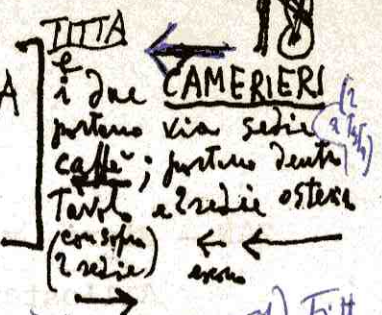 18
TITTA
A
e
i due CAMERIERI
portano via sedie (2
caffè; portano dentro
Tavolo e 2 sedie osteria
(con sopra
2 sedie)
escono